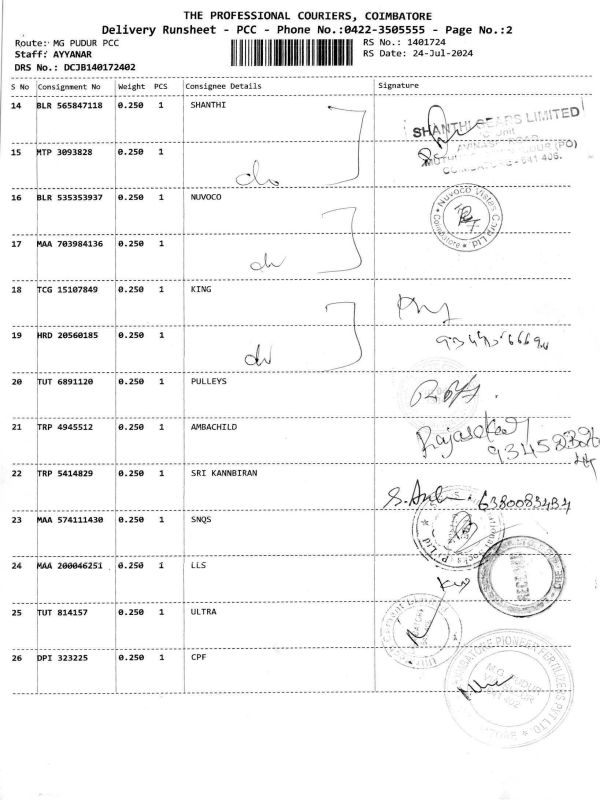 THE PROFESSIONAL COURIERS, COIMBATORE
Delivery Runsheet - PCC - Phone No.:0422-3505555 - Page No.:2
Route: MG PUDUR PCC
RS No.: 1401724
Staff: AYYANAR
RS Date: 24-Jul-2024
DRS No.: DCJB140172402
S No Consignment No Weight PCS Consignee Details Signature
14 BLR 565847118 0.250 1 SHANTHI
SHANTHI GEARS LIMITED
15 MTP 3093828 0.250 1
COIMBATORE - 641 406.
16 BLR 535353937 0.250 1 NUVOCO
Nuvoco Vistas Corp Ltd
Coimbatore
17 MAA 703984136 0.250 1
18 TCG 15107849 0.250 1 KING
19 HRD 20560185 0.250 1
20 TUT 6891120 0.250 1 PULLEYS
21 TRP 4945512 0.250 1 AMBACHILD
22 TRP 5414829 0.250 1 SRI KANNBIRAN
6380083434
23 MAA 574111430 0.250 1 SNQS
24 MAA 200046251 0.250 1 LLS
RECEIVED
25 TUT 814157 0.250 1 ULTRA
26 DPI 323225 0.250 1 CPF
COIMBATORE PIONEER FERTILIZERS PVT LTD.
M.G. PUDUR